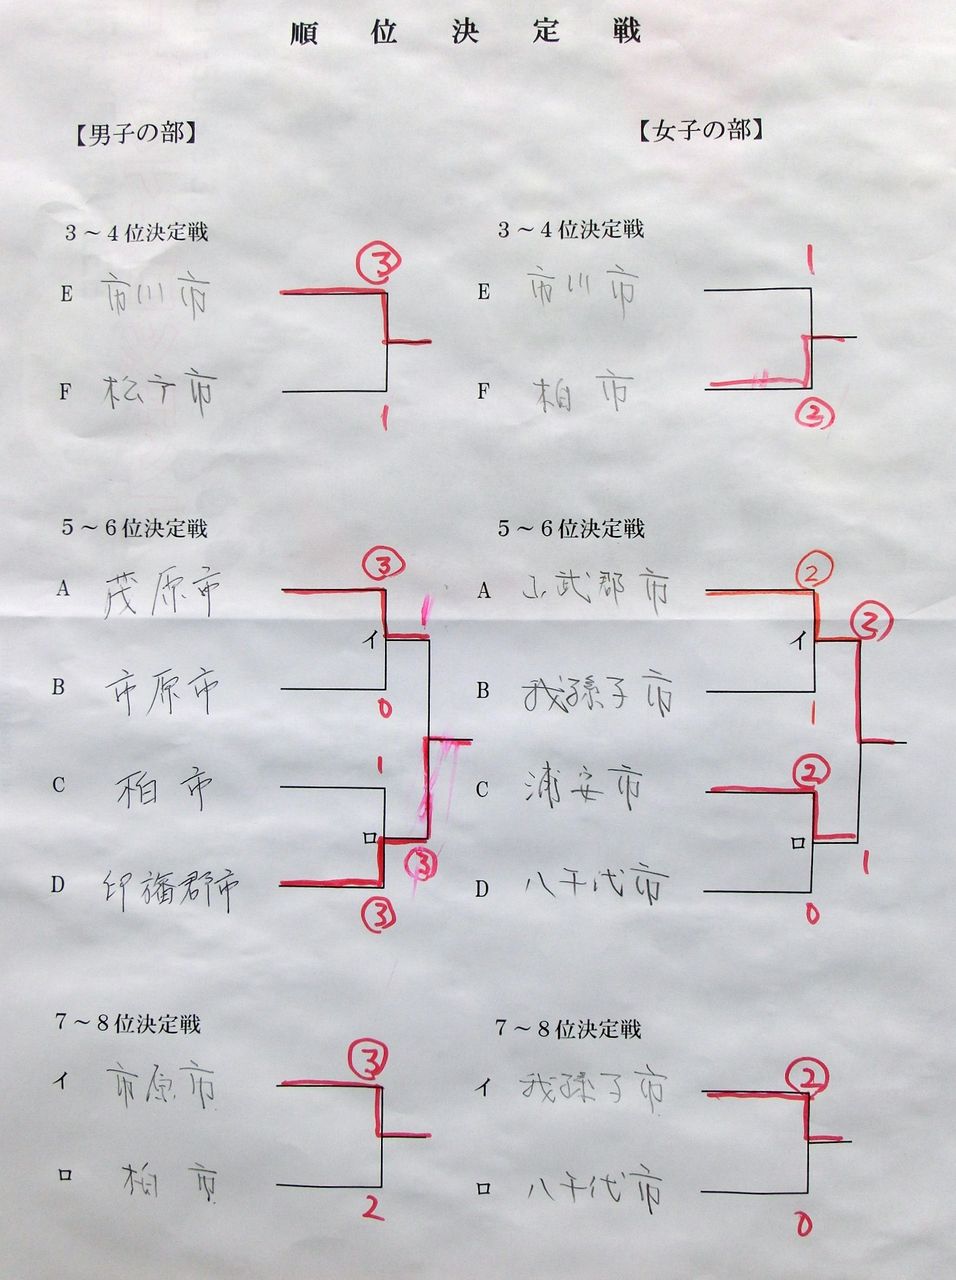 順位決定戦
【男子の部】
3～4位決定戦
③
E 市川市
F 松戸市
1
5～6位決定戦
③
A 茂原市
1
イ
B 市原市
0
1
C 柏市
ロ
③
D 印旛郡市
③
7～8位決定戦
③
イ 市原市
ロ 柏市
2
【女子の部】
3～4位決定戦
1
E 市川市
F 柏市
②
5～6位決定戦
②
A 山武郡市
③
イ
B 我孫子市
1
②
C 浦安市
ロ
1
D 八千代市
0
7～8位決定戦
②
イ 我孫子市
ロ 八千代市
0